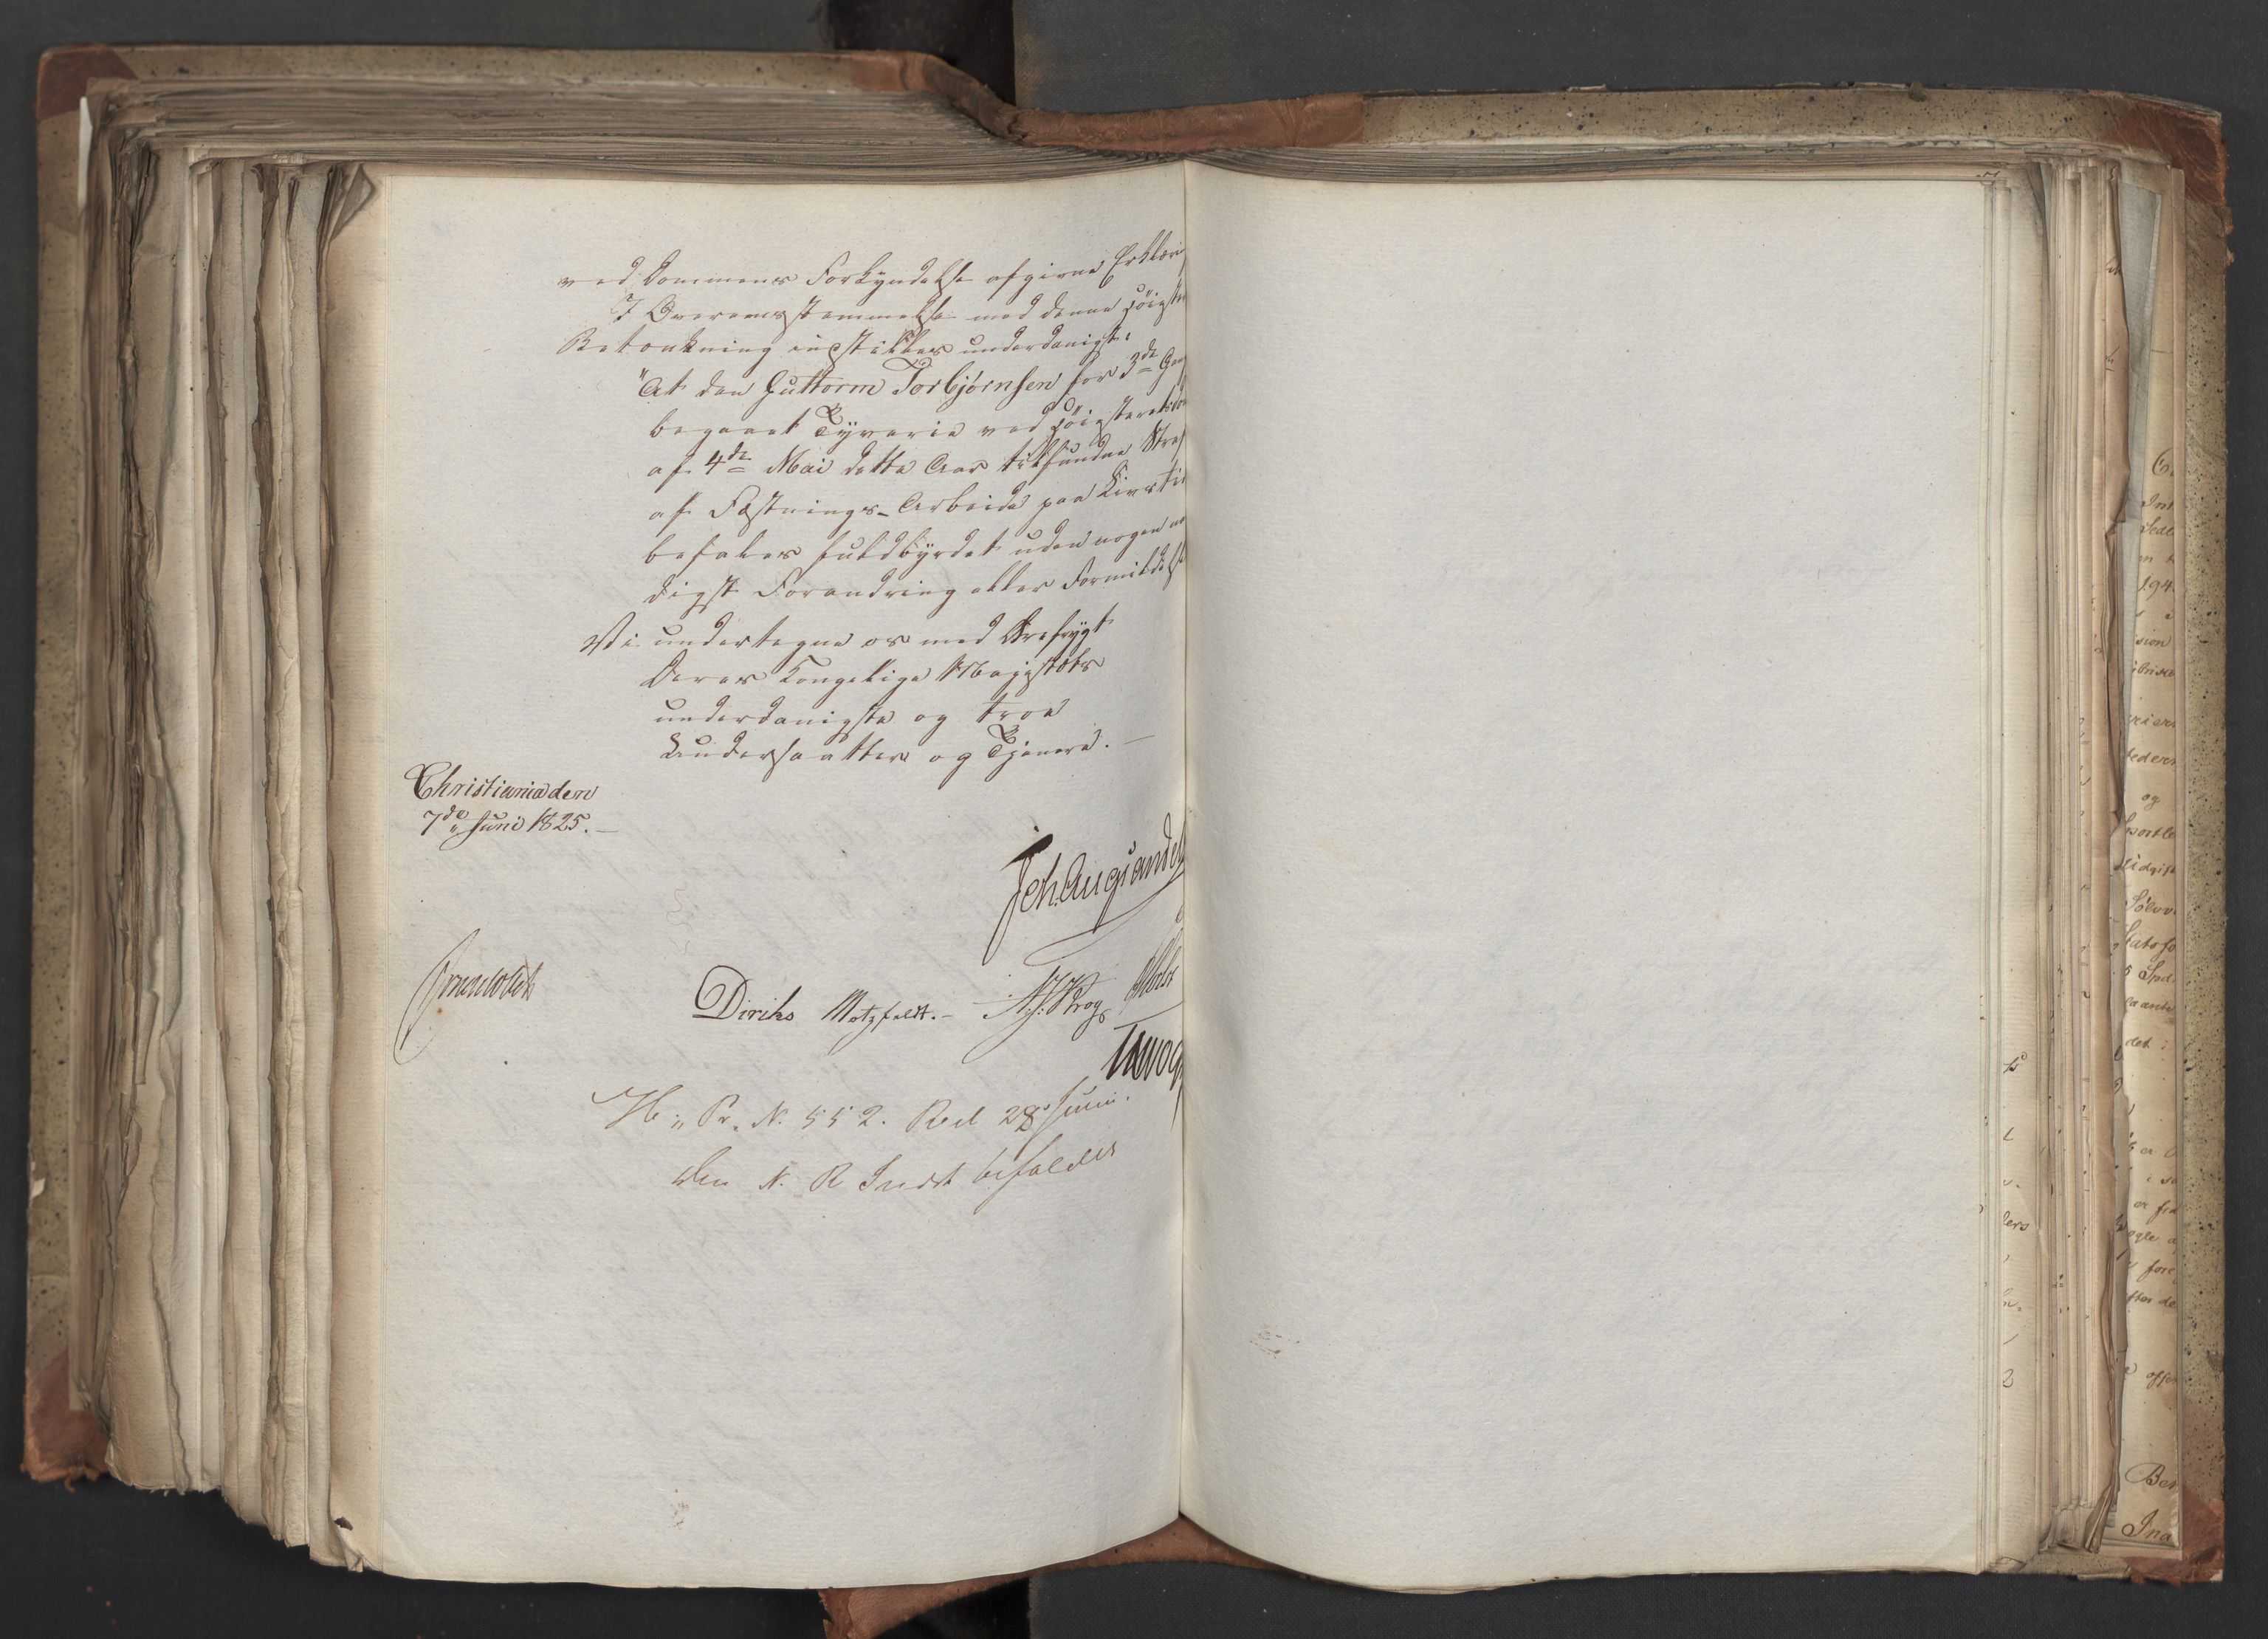 ved Dommens Forkyndelse afgivne Erklæri
I Overeensstemmelse med denne Höieste
Betænkning indstilles underdanigst:
"At den Guttorm Torbjørnsen for 3de Gang
begaaet Tyverie ved Höiesteretsdom
af 4de Mai dette Aar tilfundne Straf
af Fæstnings-Arbeide paa Livstid
befales fuldbyrdet uden nogen naa
digst Forandring eller Formildelse
Vi undertegne os med Ærefrygt
Deres Kongelige Majestæts
underdanigste og troe
Undersaatter og Tjenere. —
Christiania den
7de Juni 1825. —
Joh. Aug: Sandels
Diriks Motzfeldt. — Krog Holst
H: Pr. N. 552. Res 28 Juni.
Den N. R Indst bifaldes